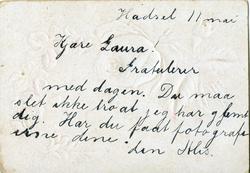 Hadsel 11 mai
Kjære Laura!
Gratulerer
med dagen. Du maa
slet ikke tro at jeg har glemt
dig. Har du faat fotografi
erne dine.
din